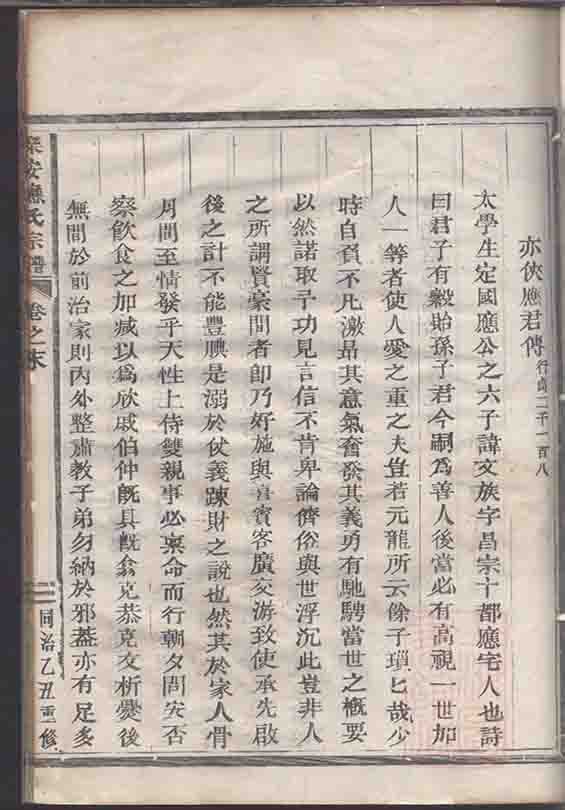 亦俠應君傳 行貞二千一百八
太學生定國應公之六子諱文族字昌宗十都應宅人也詩
曰君子有穀貽孫子君今嗣爲善人後當必有高視一世加
人一等者使人愛之重之夫豈若元龍所云餘子瑣匕哉少
時自負不凡激昻其意氣奮發其義勇有馳騁當世之槪要
以然諾取予功見言信不肯卑論儕俗與世浮沉此豈非人
之所謂賢豪間者卽乃好施與喜賓客廣交游致使承先啟
後之計不能豐腆是溺於仗義踈財之說也然其於家人骨
月間至情發乎天性上侍雙親事必禀命而行朝夕問安否
察飮食之加减以爲欣戚伯仲旣具旣翕克恭克友析爨後
無間於前治家則內外整肅教子弟勿納於邪葢亦有足多
安應氏宗譜 卷之末
同治乙丑重修